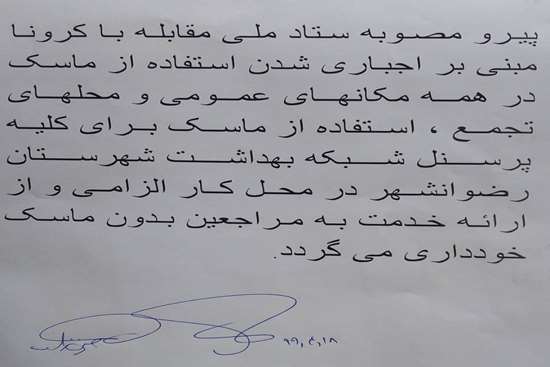 پیرو مصوبه ستاد ملی مقابله با کرونا
مبنی بر اجباری شدن استفاده از ماسک
در همه مکانهای عمومی و محلهای
تجمع ، استفاده از ماسک برای کلیه
پرسنل شبکه بهداشت شهرستان
رضوانشهر در محل کار الزامی و از
ارائه خدمت به مراجعین بدون ماسک
خودداری می گردد.
۹۹,۴,۱۸